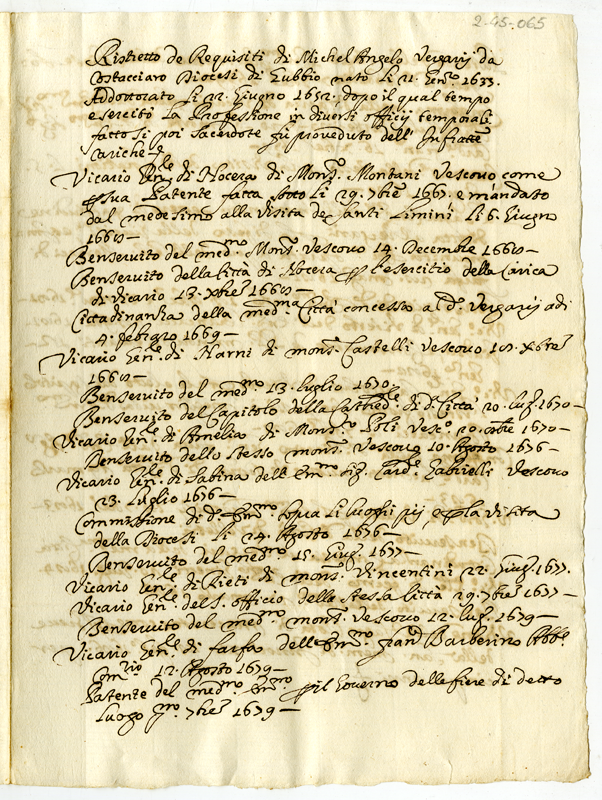 2-45-065
Ristretto de Requisiti di Michel Angelo Vergarij da
Costacciaro Diocesi di Gubbio nato li 21. Gen.ro 1633.
Addottorato li 22. Giugno 1652. dopo il qual tempo
esercitò la Professione in diversi officij temporali
fattosi poi Sacerdote fù proveduto dell' Infratte
Cariche
Vicario Gn.le di Nocera di Mons.r Montani Vescovo come
sua Patente fatta sotto li 29. 7bre 1667. e mandato
dal medesimo alla visita de Santi Limini li 6. Giugno
1668 —
Benservito del med.mo Mons.r Vescovo 14. Decembre 1668 —
Benservito della Città di Nocera l'esercitio della Carica
di Vicario 13. Xbre 1668 —
Cittadinanza della med.ma Città concessa al d. Vergarij adi
4. febraro 1669 —
Vicario Gen. di Narni di mons.r Castelli Vescovo Xbre
1668 —
Benservito del med.mo 13. luglio 1670
Benservito del Capitolo della Cathed.le di d. Città 20. lug. 1670 —
Vicario Gn.le di Amelia di Mons.r Poli Vesc.o 20. 1670 —
Benservito dello stesso mons.r Vescovo 10. Agosto 1676 —
Vicario Gn.le di Sabina dell' Em.mo Sig. Card. Gabrielli Vescovo
23. Luglio 1676 —
Commissione di d. Em.mo sopra li luoghi pij, e la visita
della Diocesi li 24. Agosto 1676 —
Benservito del med.mo 15. Giug. 1677 —
Vicario Gn.le di Rieti di mons.r Vincentini 22. Giug. 1677.
Vicario Gn.le del S. officio della stessa Città 29. 7bre 1677 —
Benservito del med.mo mons.r Vescovo 12. lug. 1679 —
Vicario Gen.le di farfa dell' Em.mo Barberino Abb.
12. Agosto 1679 —
Patente del med.mo Em.mo il Governo delle fiere di detto
Luogo p.mo 7bre 1679 —